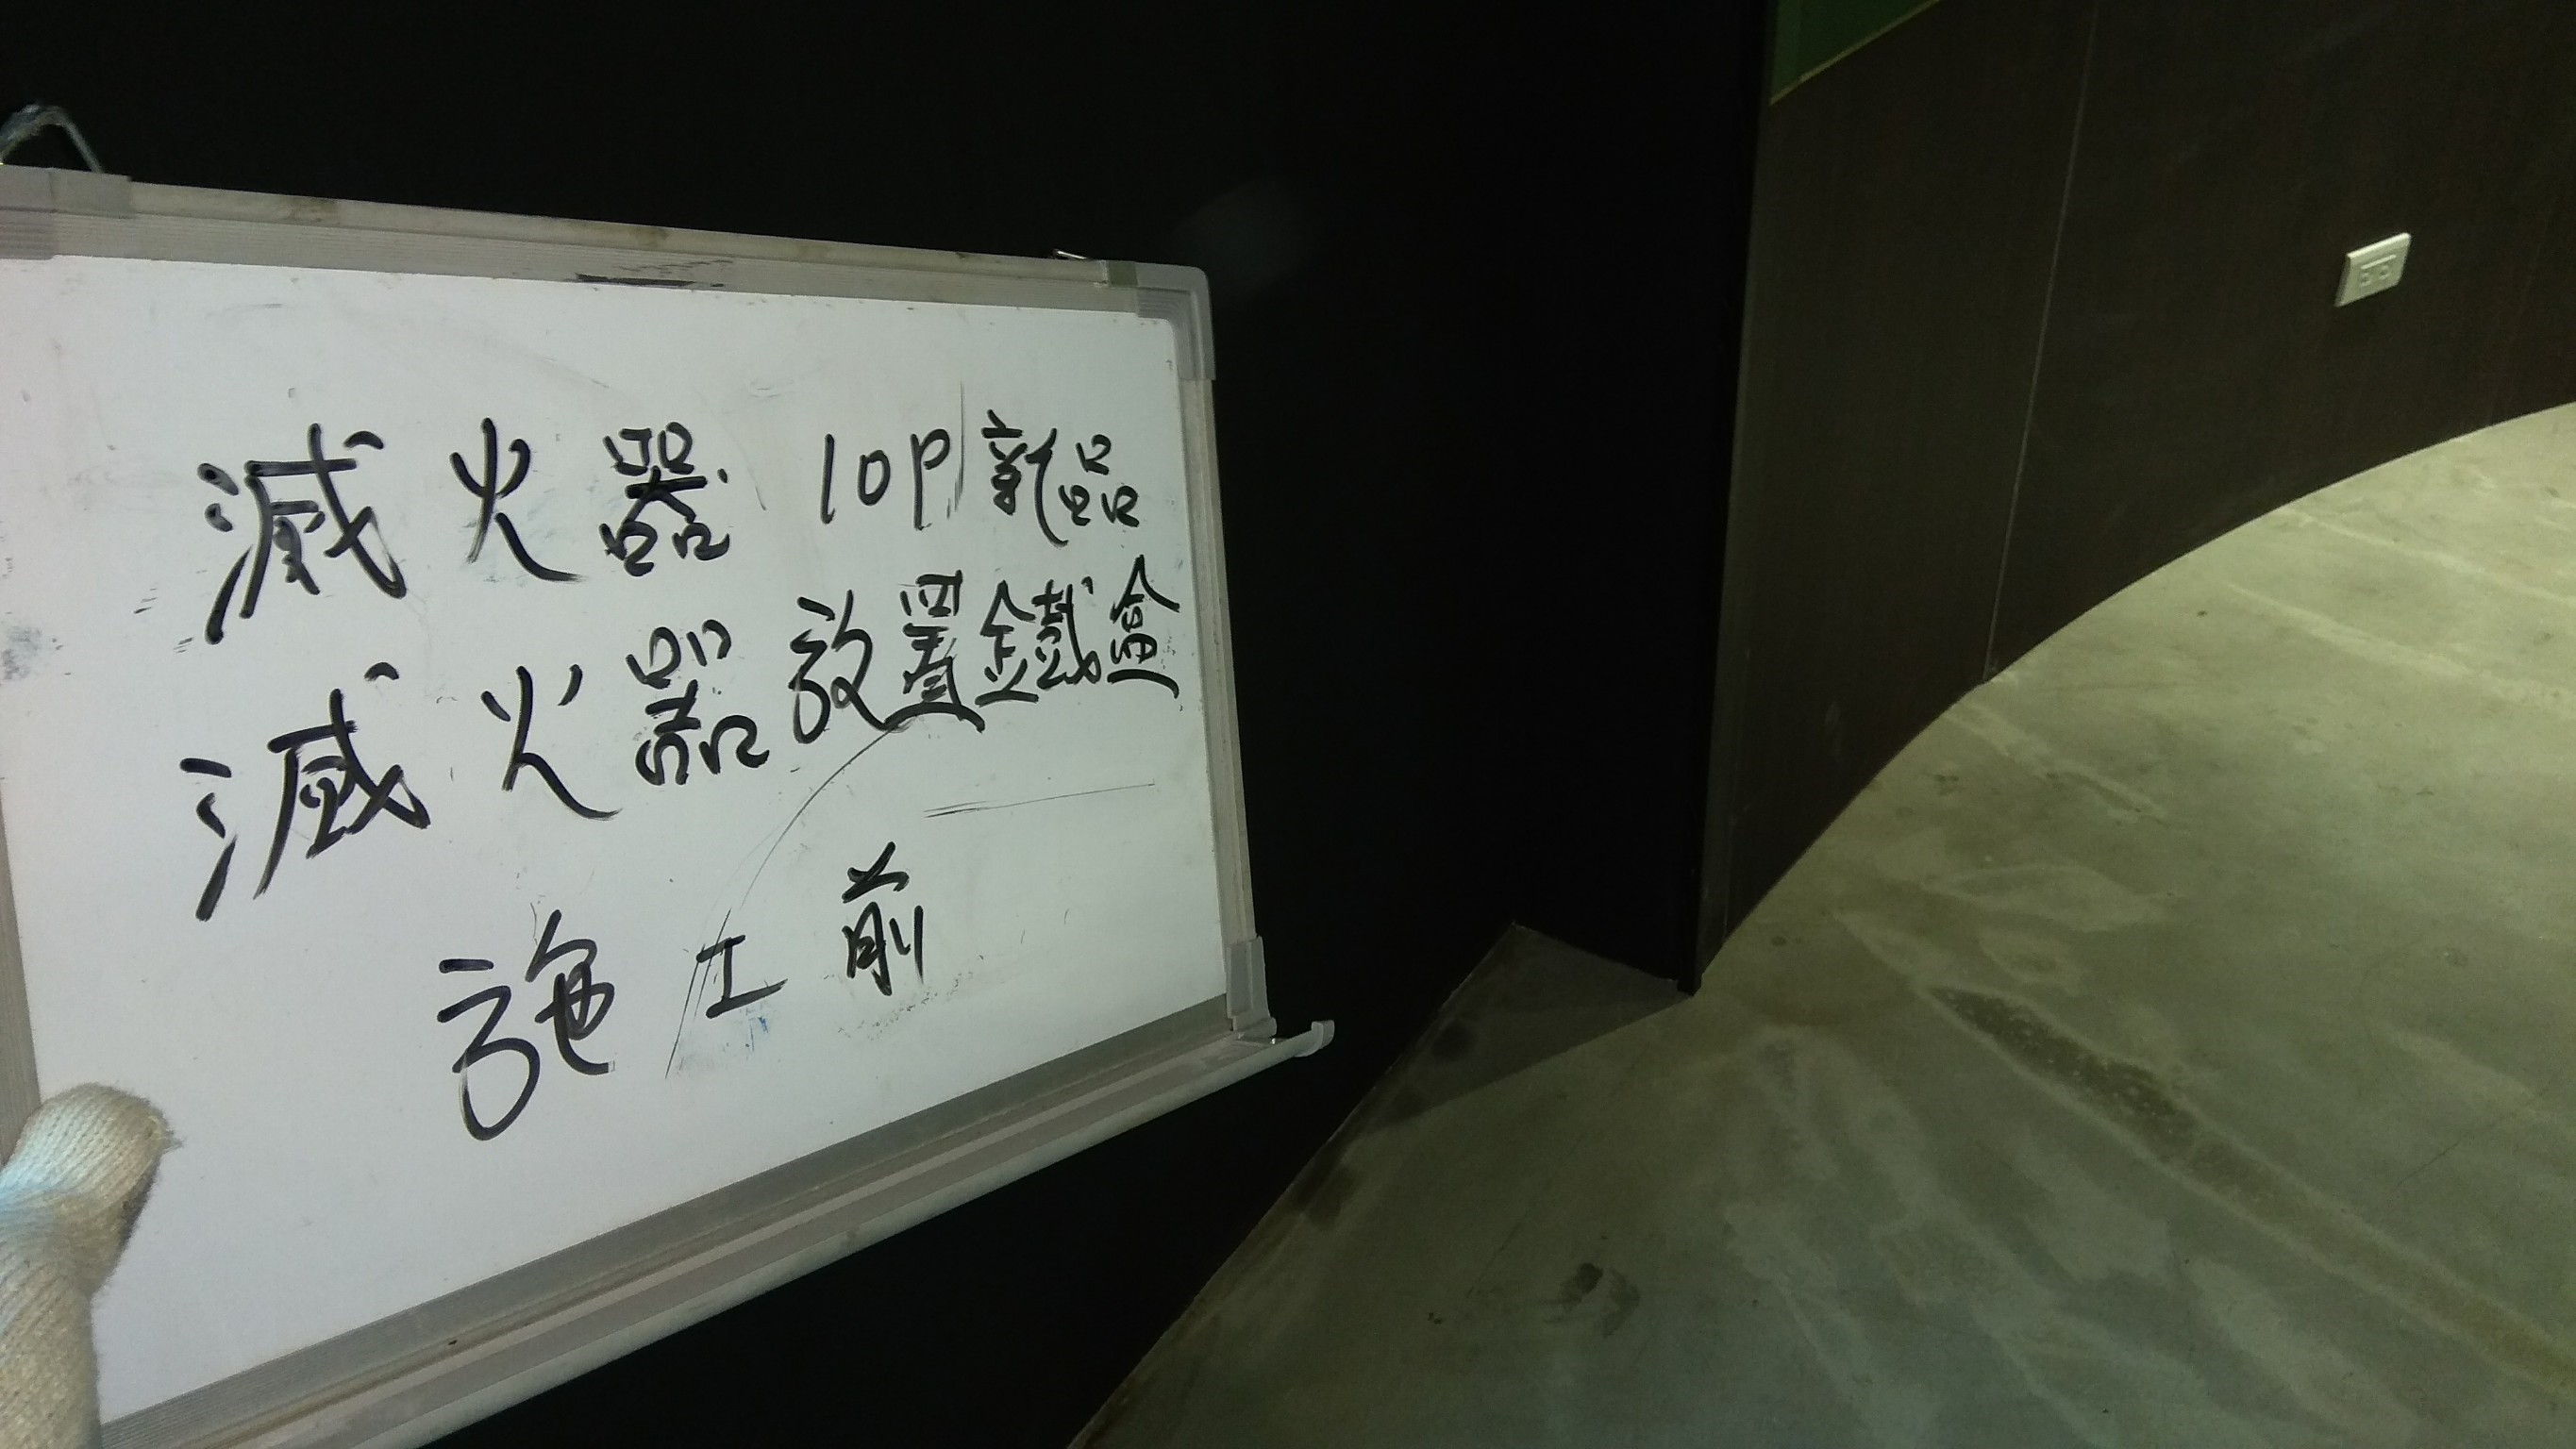 滅火器 10P 新品
滅火器放置鐵盒
施工前